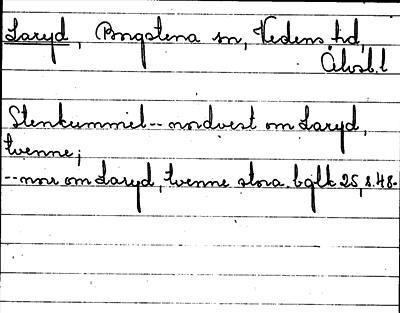 Laryd, Bragstena sn, Vedens hd,
Älvsb.l
Stenkummel -- nordvest om Laryd,
tvenne;
-- norr om Laryd, tvenne stora. bgllt 25, s.48.